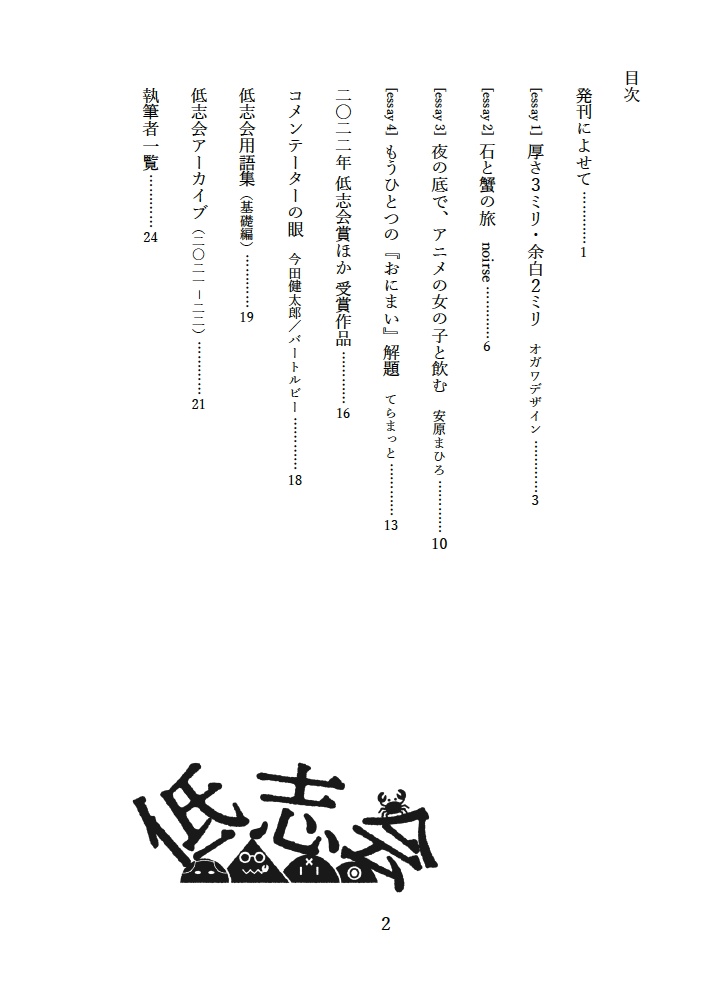 目次
発刊によせて …………1
[essay 1] 厚さ3ミリ・余白2ミリ オガワデザイン …………3
[essay 2] 石と蟹の旅 noirse …………6
[essay 3] 夜の底で、アニメの女の子と飲む 安原まひろ …………10
[essay 4] もうひとつの『おにまい』解題 てらまっと …………13
二〇二二年 低志会賞ほか 受賞作品 …………16
コメンテーターの眼 今田健太郎／バートルビー …………18
低志会用語集（基礎編） …………19
低志会アーカイブ（二〇二一－二二） …………21
執筆者一覧 …………24
低志会
2